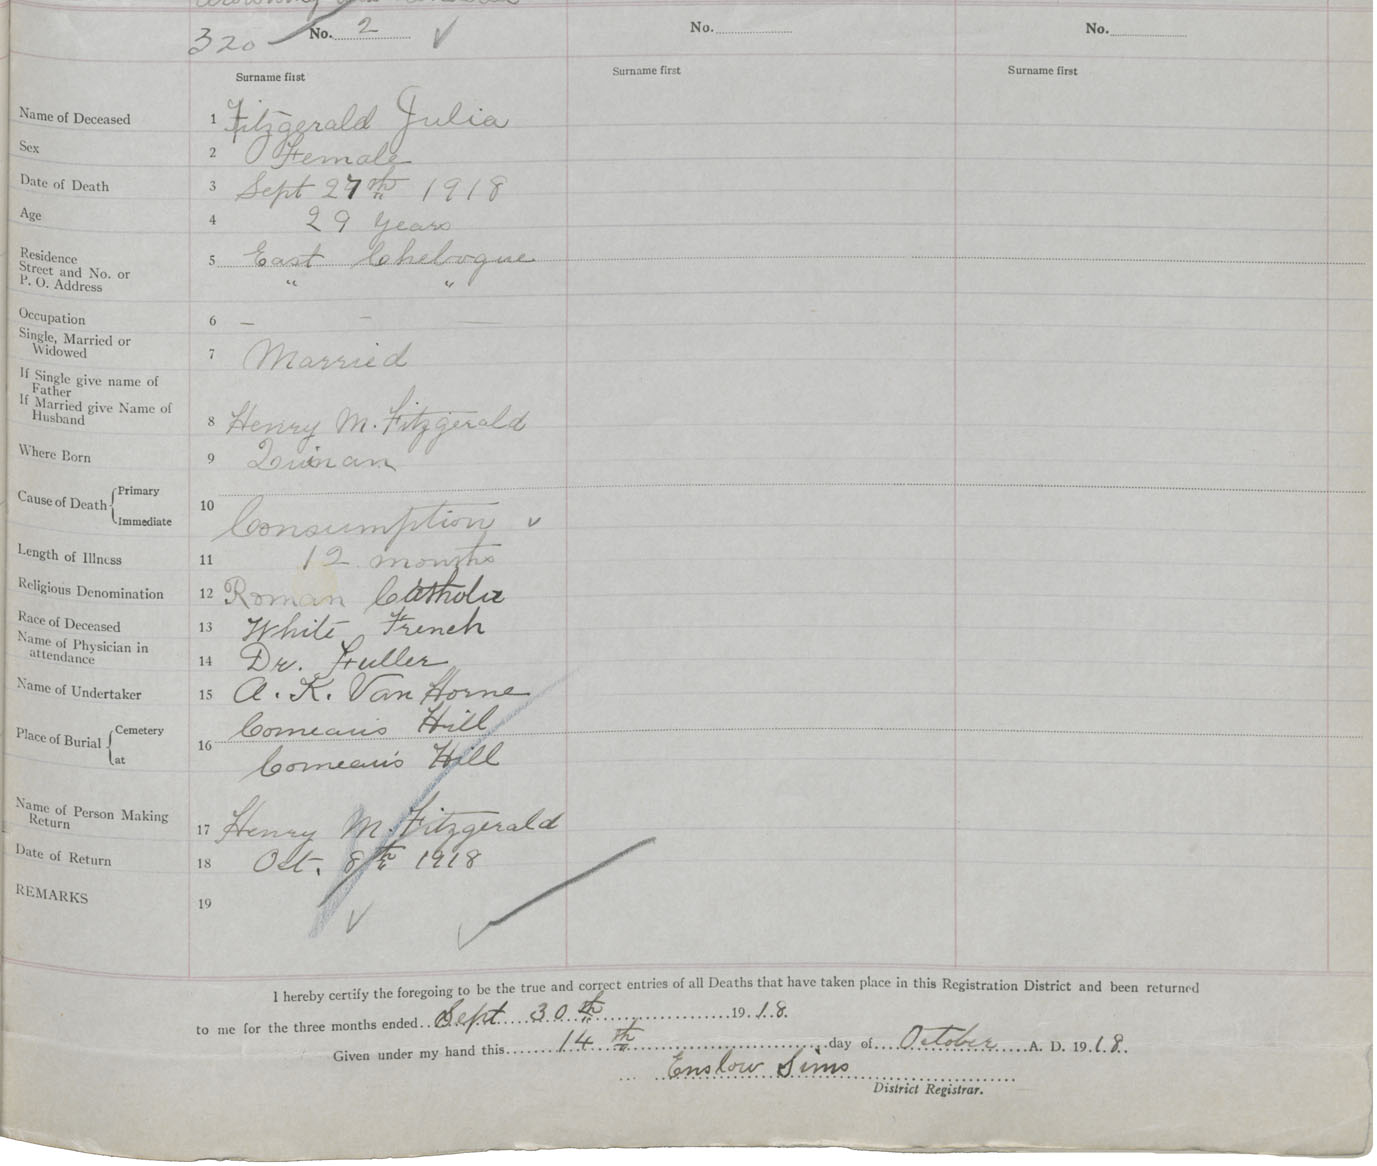 320 No. 2 No. No.
Surname first Surname first Surname first
Name of Deceased 1 Fitzgerald Julia
Sex 2 Female
Date of Death 3 Sept 27th 1918
Age 4 29 years
Residence
Street and No. or 5 East Chebogue
P. O. Address " "
Occupation 6 — —
Single, Married or
Widowed 7 Married
If Single give name of
Father
If Married give Name of
Husband 8 Henry M. Fitzgerald
Where Born 9 Quinan
Cause of Death { Primary
10
Immediate Consumption
Length of Illness 11 12 months
Religious Denomination 12 Roman Catholic
Race of Deceased 13 White French
Name of Physician in
attendance 14 Dr. Fuller
Name of Undertaker 15 A. K. Van Horne
Place of Burial { Cemetery Comeau's Hill
16
at Comeau's Hill
Name of Person Making
Return 17 Henry M. Fitzgerald
Date of Return 18 Oct. 8th 1918
REMARKS 19
I hereby certify the foregoing to be the true and correct entries of all Deaths that have taken place in this Registration District and been returned
to me for the three months ended Sept 30th 1918.
Given under my hand this 14th day of October A. D. 1918.
Enslow Sims
District Registrar.